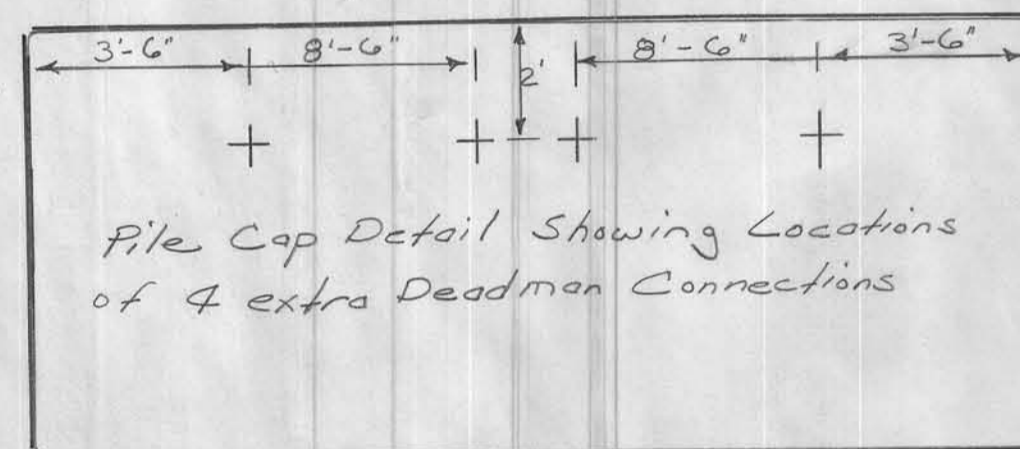 3'-6" 8'-6" 2' 8'-6" 3'-6"
Pile Cap Detail Showing Locations
of 4 extra Deadman Connections